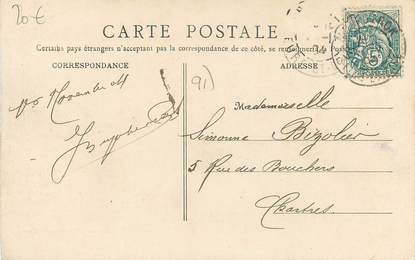 20€
CARTE POSTALE
Certains pays étrangers n'acceptant pas la correspondance de ce côté, se renseigner à la Poste
CORRESPONDANCE
ADRESSE
91)
Novembre 04
Mademoiselle
Simonne Bizolier
5 Rue des Bouchers
Chartres